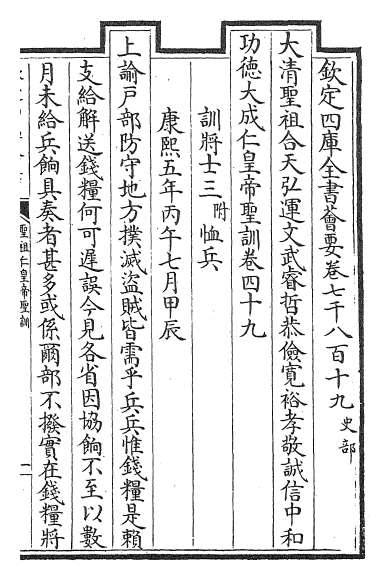 欽定四庫全書薈要卷七千八百十九 史部
大清聖祖合天弘運文武睿哲恭儉寬裕孝敬誠信中和
功德大成仁皇帝聖訓卷四十九
訓將士三 附恤兵
康熙五年丙午七月甲辰
上諭戶部防守地方撲滅盜賊皆需乎兵兵惟錢糧是賴
支給解送錢糧何可遲誤今見各省因協餉不至以數
月未給兵餉具奏者甚多或係爾部不撥實在錢糧將
聖祖仁皇帝聖訓